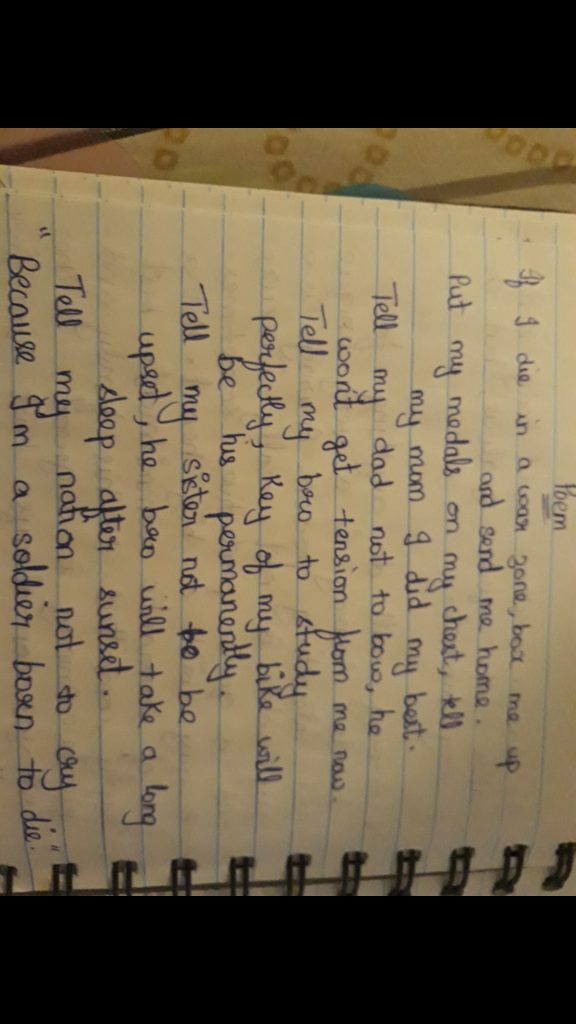 Poem
" If I die in a war zone, box me up
and send me home.
Put my medals on my chest, tell
my mom I did my best.
Tell my dad not to bow, he
won't get tension from me now.
Tell my bro to study
perfectly, Key of my bike will
be his permanently.
Tell my sister not to be
upset, he bro will take a long
sleep after sunset.
Tell my nation not to cry
"Because I'm a soldier born to die."